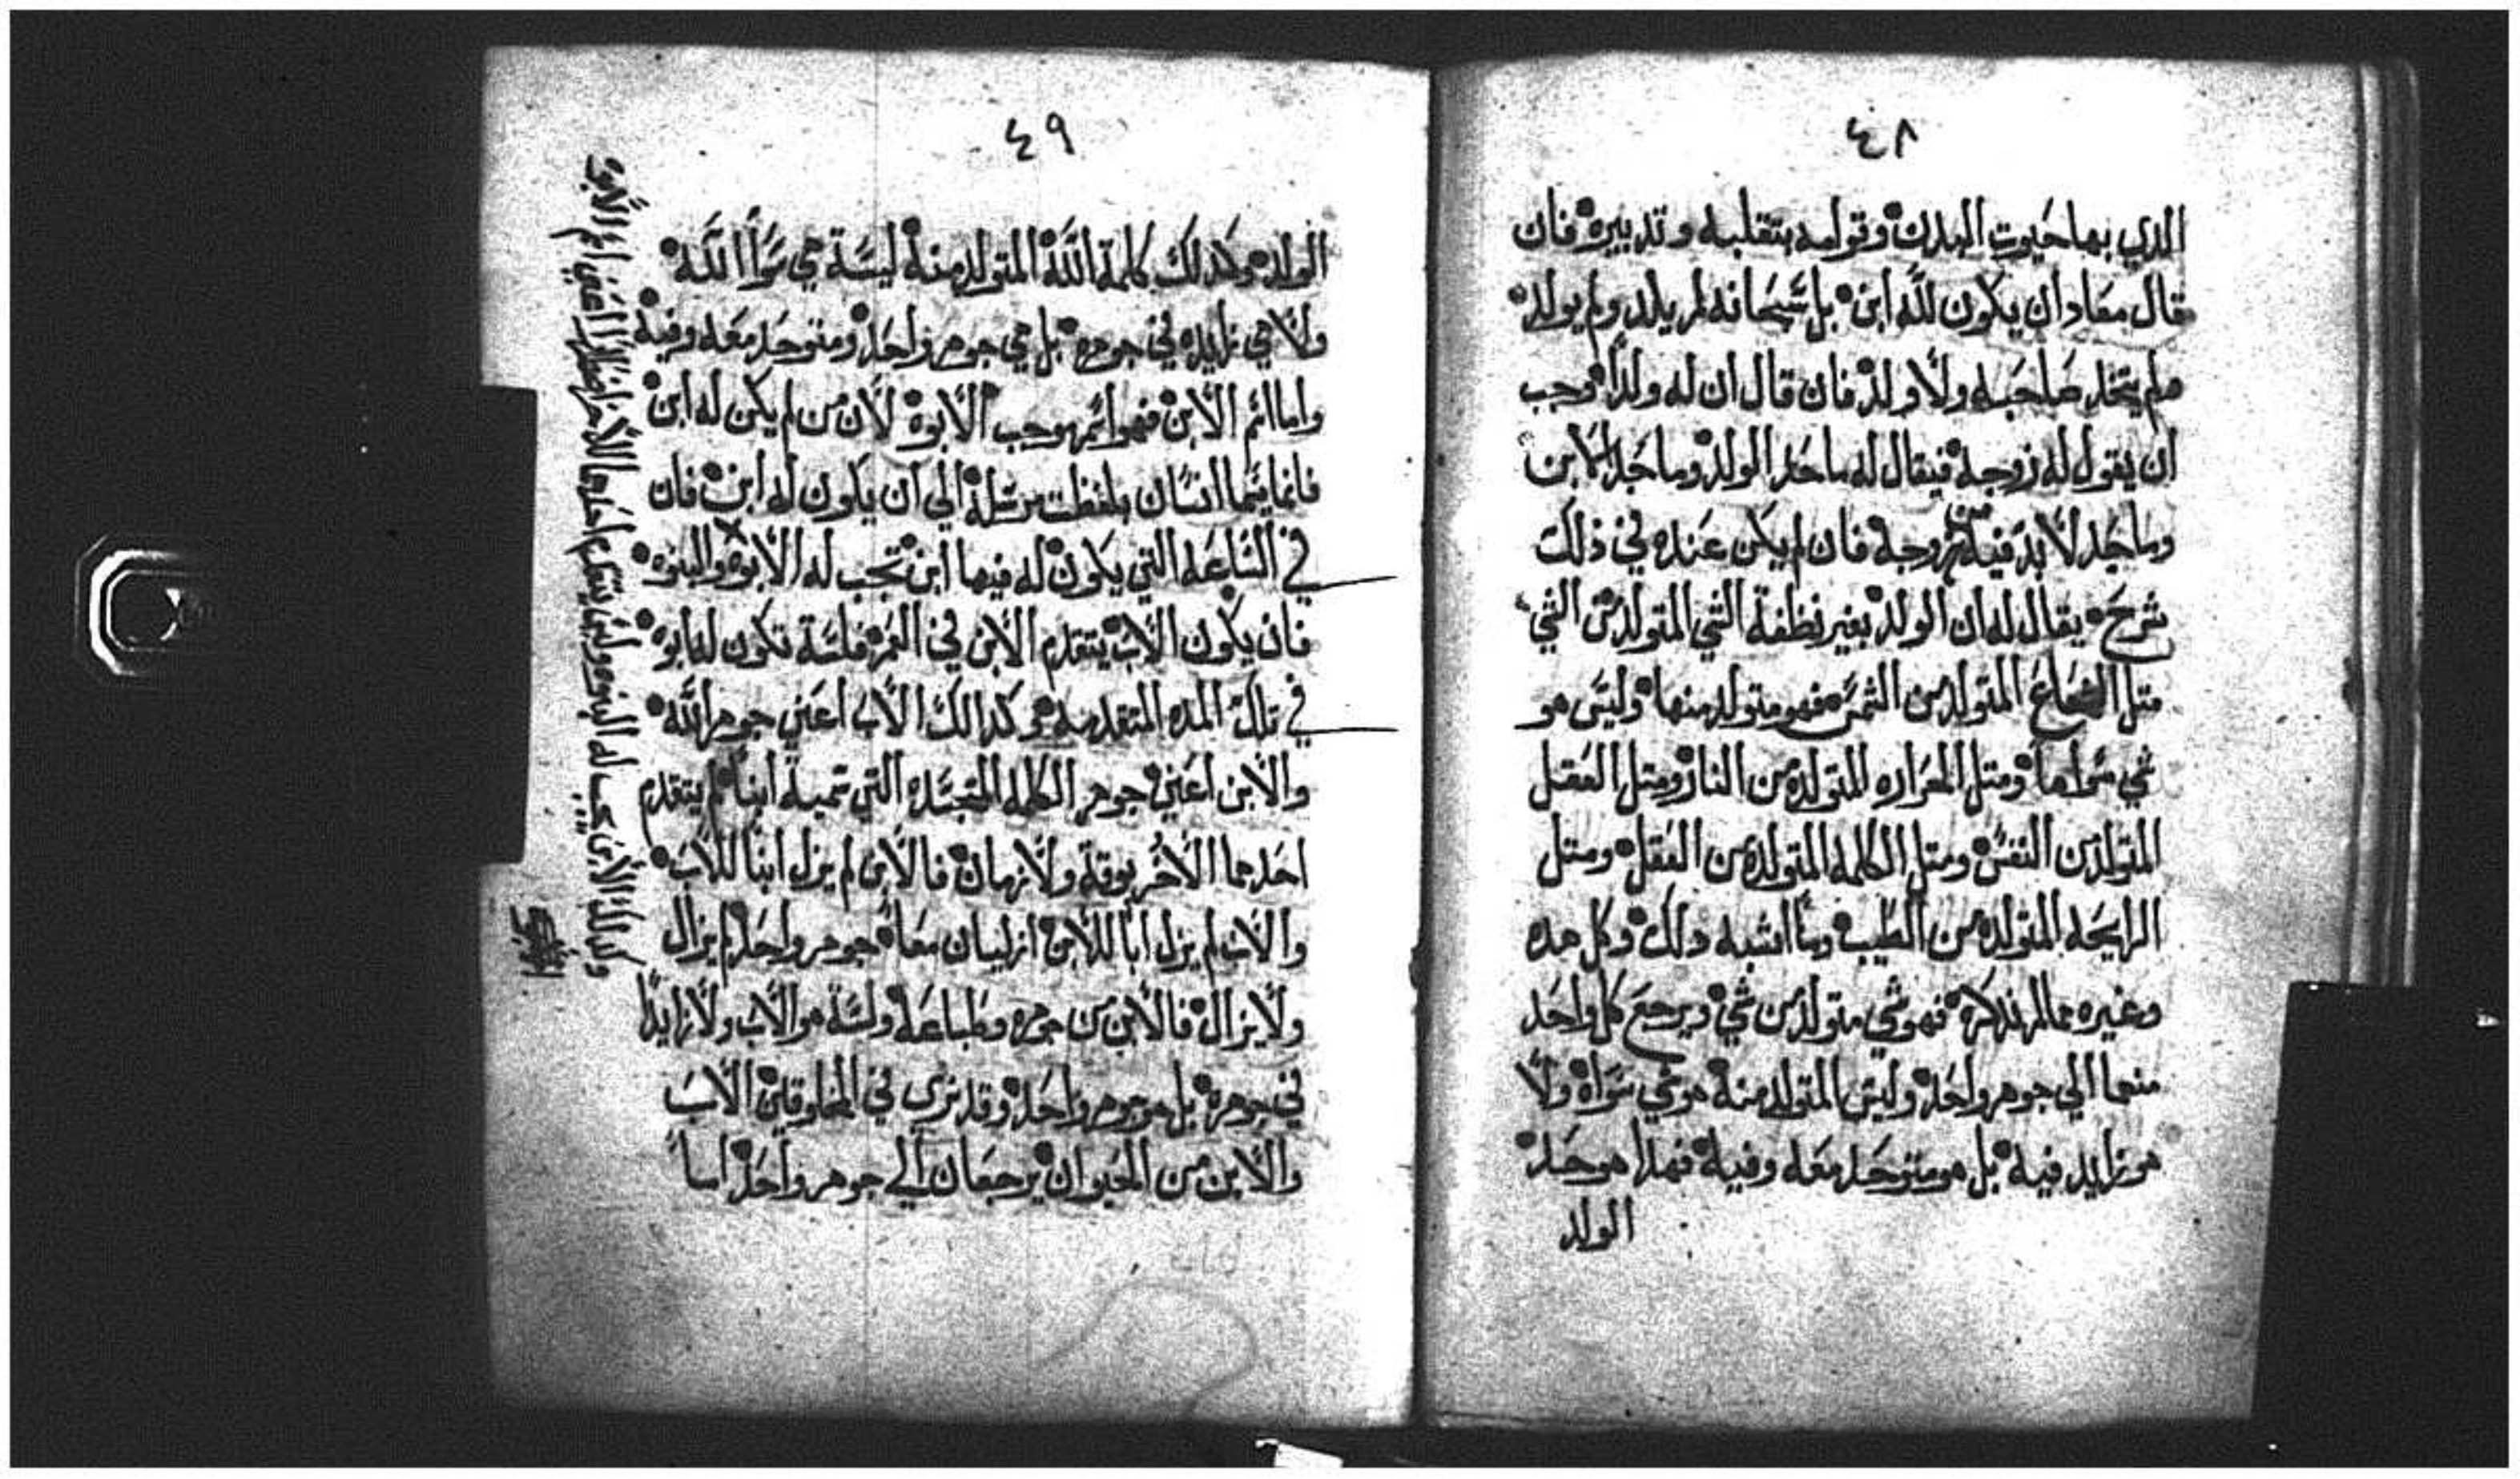 ٤٨
الدي بها حيوت البدن وقوامه بتقلبه وتدبيره فان
قال معاد ان يكون لله ابن بل سبحانه لم يلد ولم يولد
ولم يتخد صاحبه ولا ولد فان قال ان له ولدا وجب
ان يقول له زوجه فيقال له ما حد الولد وما حد الابن
وما حد لا بد فيه من زوجه فان لم يكن عنده في ذلك
شرح يقال له ان الولد بغير نطفة الشي المتولد من الشي
متل الشعاع المتولد من الشمس فهو متولد منها وليس هو
شي سواها ومتل الحراره المتولده من النار ومتل العقل
المتولد من النفس ومتل الكلمه المتولده من العقل ومتل
الرايحه المتولده من الطيب وما اشبه دلك وكل هده
وغيره مما لم ندكره فهو شي متولد من شي ويرجع كل واحد
منهما الي جوهر واحد وليس المتولد منه هو شي سواه ولا
هو زايد فيه بل هو متوحد معه وفيه فهدا هو حد
الولد
٤٩
الولد وكدلك كلمة الله المتولد منه ليسة هي سوا الله
ولا هي زايده في جوهره بل هي جوهر واحد ومتوحد معه وفيه
واما اسم الابن فهو اسم يوجب الابوة لان من لم يكن له ابن
فانما يسما انسان بلفظت مرسلة الي ان يكون له ابن فان
في الساعه التي يكون له فيها ابن تجب له الابوه والبنوه
فان يكون الاب يتقدم الابن في العمر فلسة تكون له ابوة
في تلك المده المتقدمه وكدالك الاب اعني جوهر الله
والابن اعني جوهر الكلمه المتجسده التي سمية ابنا لم يتقدم
احدهما الاخر بوقة ولا زمان فالابن لم يزل ابنا للاب
والاب لم يزل ابا للابن ازليان معا جوهر واحد لم يزال
ولا يزال فالابن من جوهره وطباعه ولسة هو الاب ولا زايدا
في جوهره بل هو جوهر واحد وقد نري في المخلوقين الاب
والابن من الحيوان يرجعان الي جوهر واحد اسا